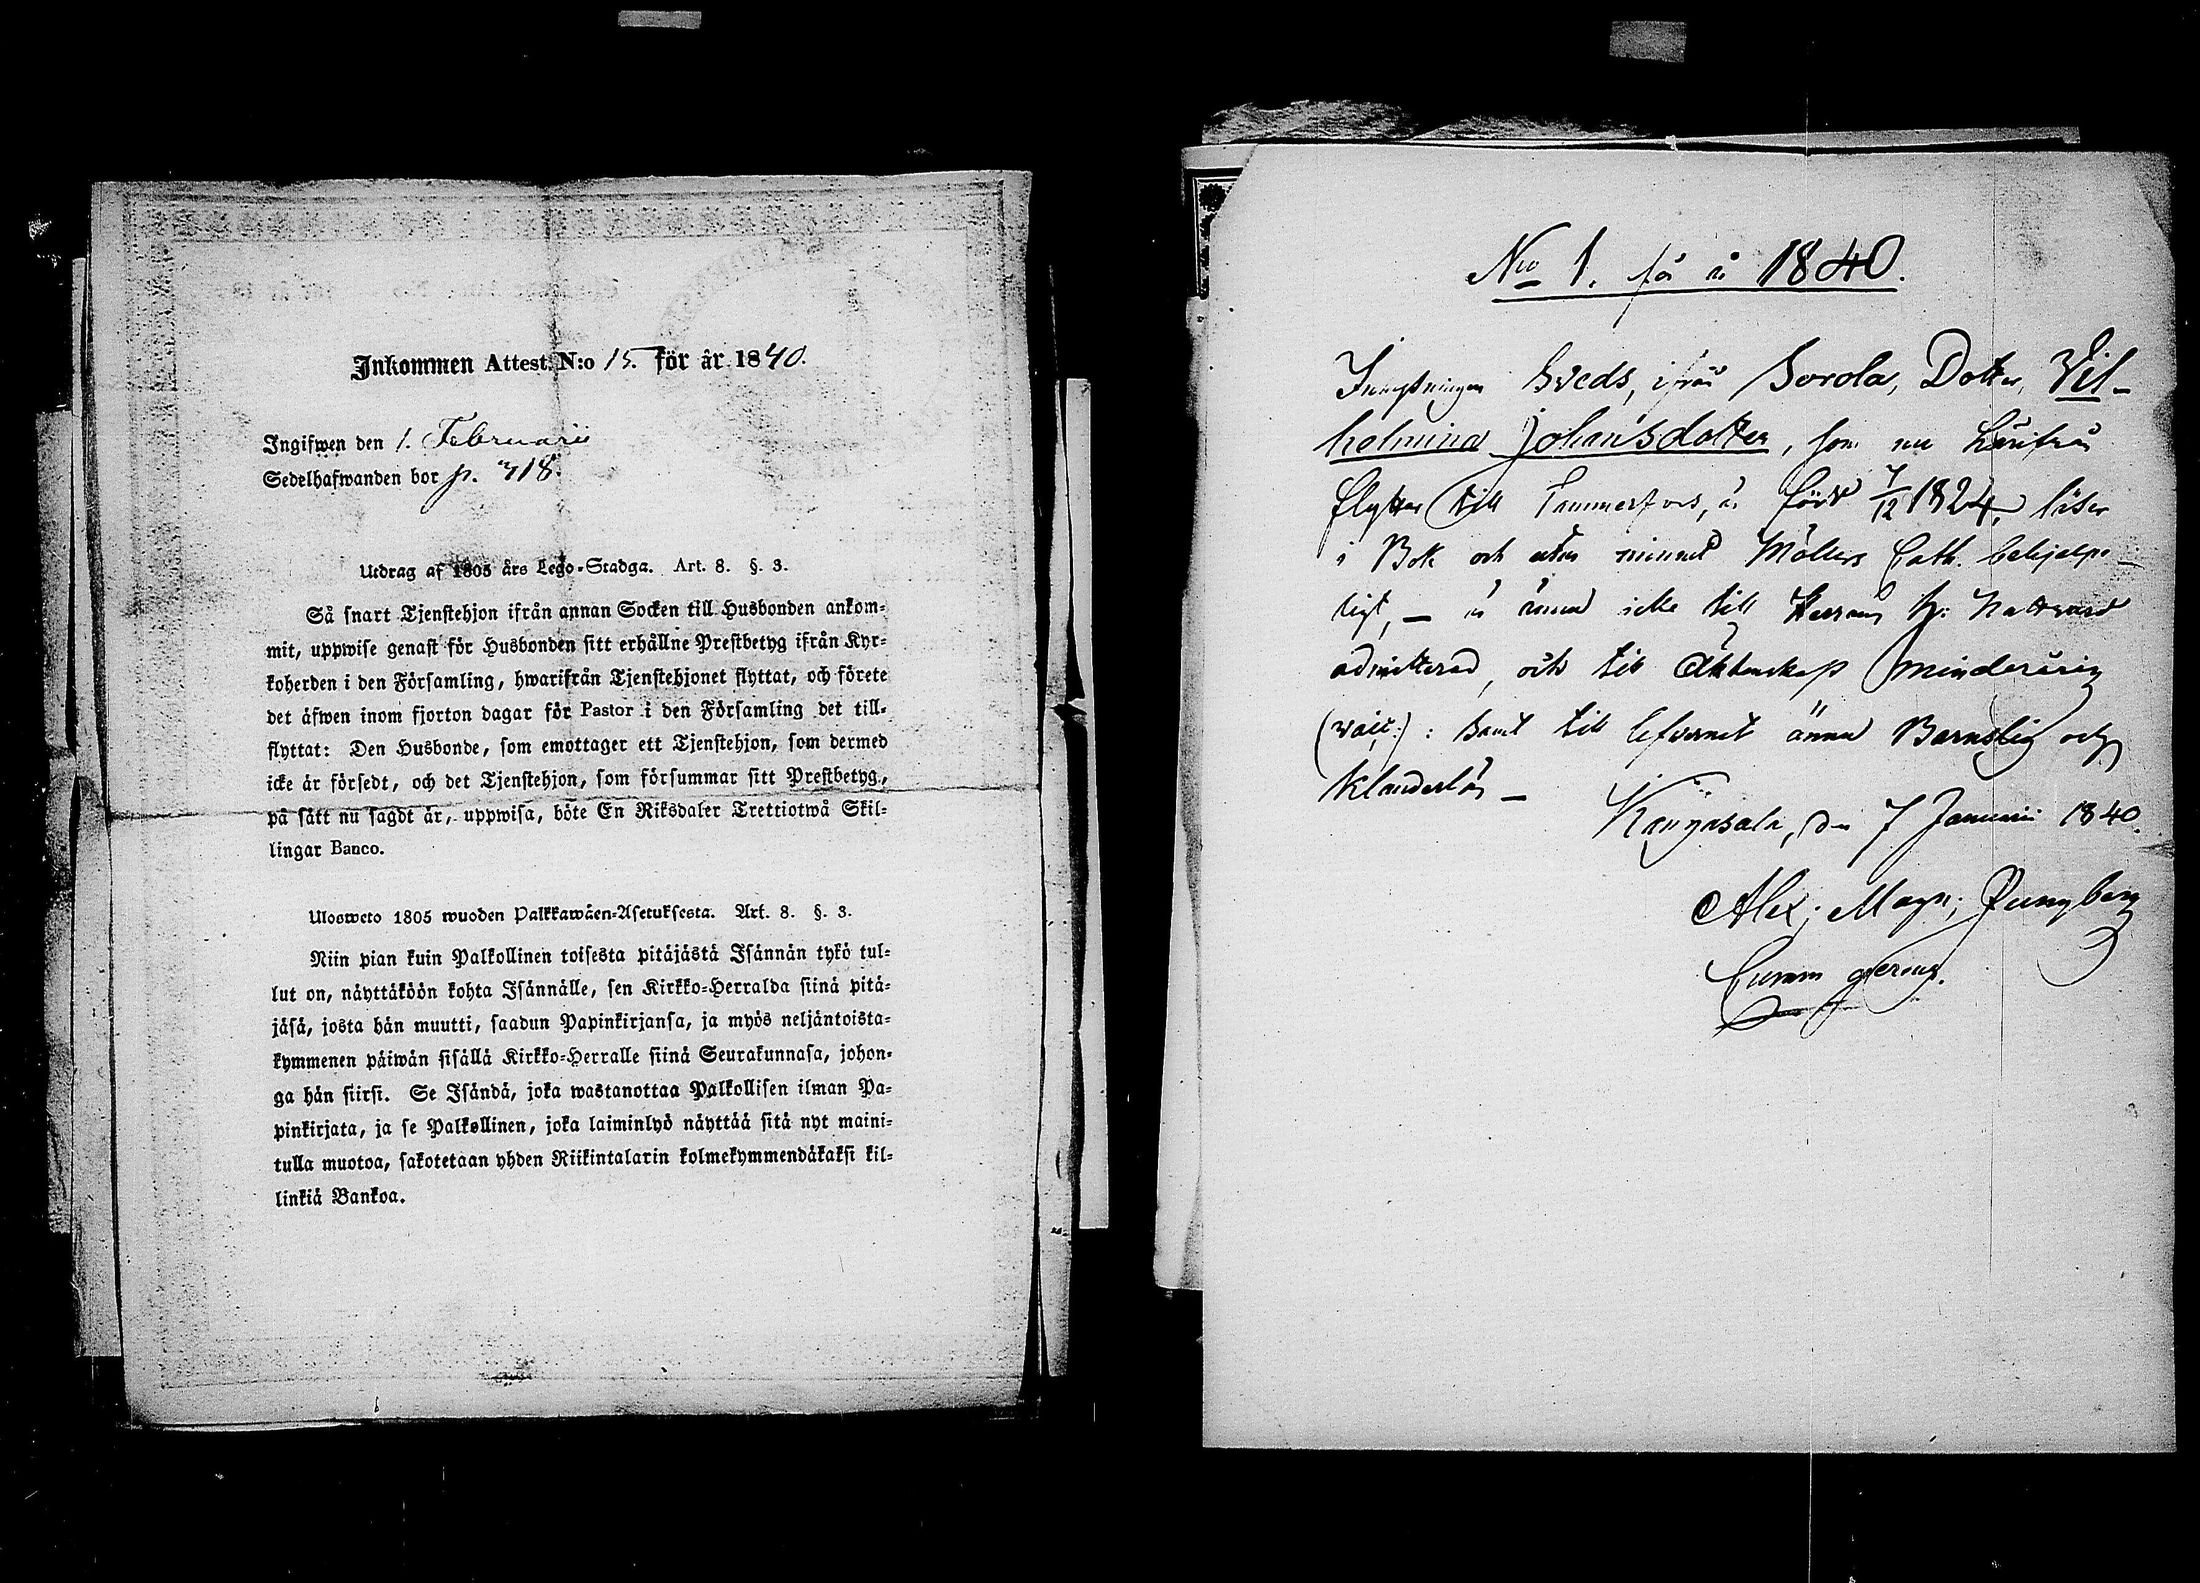 Inkommen Attest N:o 15. för år 1840.
Ingifwen den 1. Februarii
Sedelhafwanden bor p. 718.
Utdrag af 1805 års Lego-Stadga. Art. 8. §. 3.
Så snart Tjenstehjon ifrån annan Socken till Husbonden ankom-
mit, uppwise genast för Husbonden sitt erhållne Prestbetyg ifrån Kyr-
koherden i den Församling, hwarifrån Tjenstehjonet flyttat, och förete
det äfwen inom fjorton dagar för Pastor i den Församling det till-
flyttat: Den Husbonde, som emottager ett Tjenstehjon, som dermed
icke är försedt, och det Tjenstehjon, som försummar sitt Prestbetyg,
på sätt nu sagdt är, uppwisa, böte En Riksdaler Trettiotwå Skil-
lingar Banco.
Ulosweto 1805 wuoden Palkkawäen-Asetuksesta. Art. 8. §. 3.
Niin pian kuin Palkollinen toisesta pitäjästä Isännän tykö tul-
lut on, näyttäköön kohta Isännälle, sen Kirkko-Herralda siinä pitä-
jäsä, josta hän muutti, saadun Papinkirjansa, ja myös neljäntoista-
kymmenen päiwän sisällä Kirkko-Herralle siinä Seurakunnasa, johon-
ga hän siirsi. Se Isändä, joka wastanottaa Palkollisen ilman Pa-
pinkirjata, ja se Palkollinen, joka laiminlyö näyttää sitä nyt maini-
tulla muotoa, sakotetaan yhden Riikintalarin kolmekymmendäkaksi kil-
linkiä Bankoa.
No 1. för år 1840.
Inhysningen Sveds, ifrån Sorola, Dotter, Vil-
helmina Johansdotter, som nu härifrån
flyttar till Tammerfors, är född 7/12 1824, läser
i Bok och utur minnet Möllers Cath. behjelpe-
ligt, – är ännu icke till Herrans H: Nattvard
admitterad, och till Äktenskap minderårig
: samt till lefvernet ännu Barnslig och
klanderlös –
Kangasala, den 7 Januarii 1840.
Alex: Magn: Ljungberg